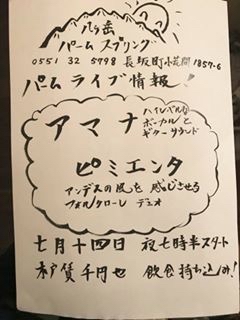 八ヶ岳
パーム スプリング
0551 32 5798 長坂町小荒間1857-6
パム ライブ情報!
アマナ
ハイレベルな
ボーカルと
ギターサウンド
ピミエンタ
アンデスの風を感じさせる
フォルクローレ デュオ
七月十四日 夜七時半スタート
木戸賃 千円也 飲食持ち込み!